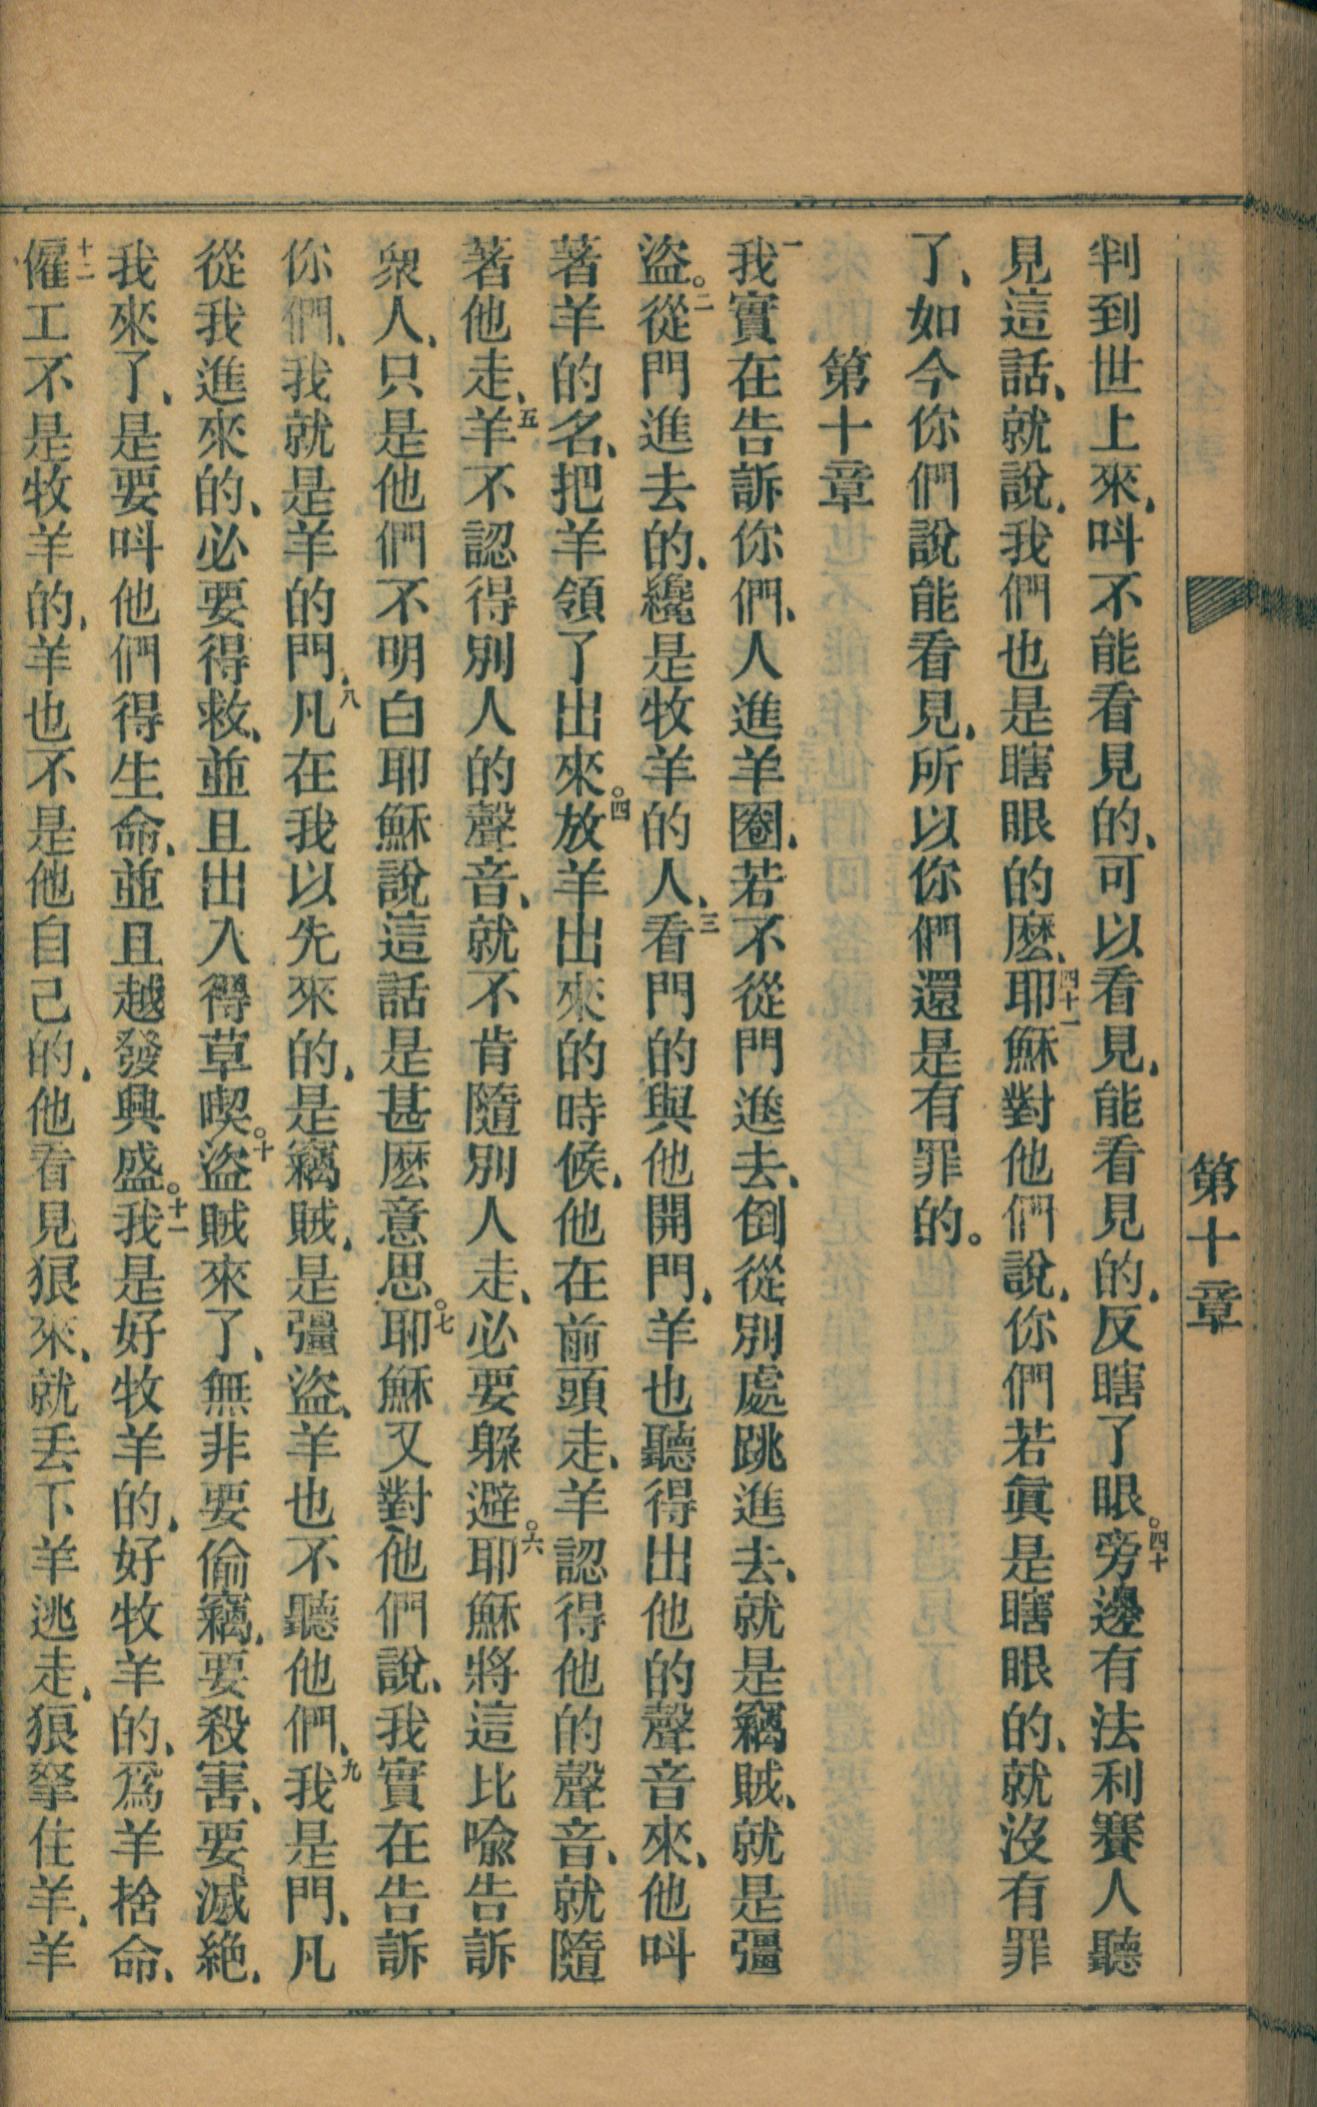 第十章
判到世上來、呌不能看見的、可以看見、能看見的、反瞎了眼。四十旁邊有法利賽人聽
見這話、就說、我們也是瞎眼的麽、四十一耶穌對他們說、你們若眞是瞎眼的、就沒有罪
了、如今你們說能看見、所以你們還是有罪的。
第十章
一我實在告訴你們、人進羊圈、若不從門進去、倒從別處跳進去、就是竊賊、就是彊
盜。二從門進去的、纔是牧羊的人、三看門的與他開門、羊也聽得出他的聲音來、他呌
著羊的名、把羊領了出來。四放羊出來的時候、他在前頭走、羊認得他的聲音、就隨
著他走、五羊不認得別人的聲音、就不肯隨別人走、必要躲避。六耶穌將這比喩告訴
衆人、只是他們不明白耶穌說這話是甚麽意思。七耶穌又對他們說、我實在告訴
你們、我就是羊的門、八凡在我以先來的、是竊賊、是彊盜、羊也不聽他們、九我是門、凡
從我進來的、必要得救、並且出入得草喫。十盜賊來了、無非要偷竊、要殺害、要滅絕、
我來了、是要呌他們得生命、並且越發興盛。十一我是好牧羊的、好牧羊的、爲羊捨命、
十二僱工不是牧羊的、羊也不是他自己的、他看見狼來、就丟下羊逃走、狼拏住羊、羊